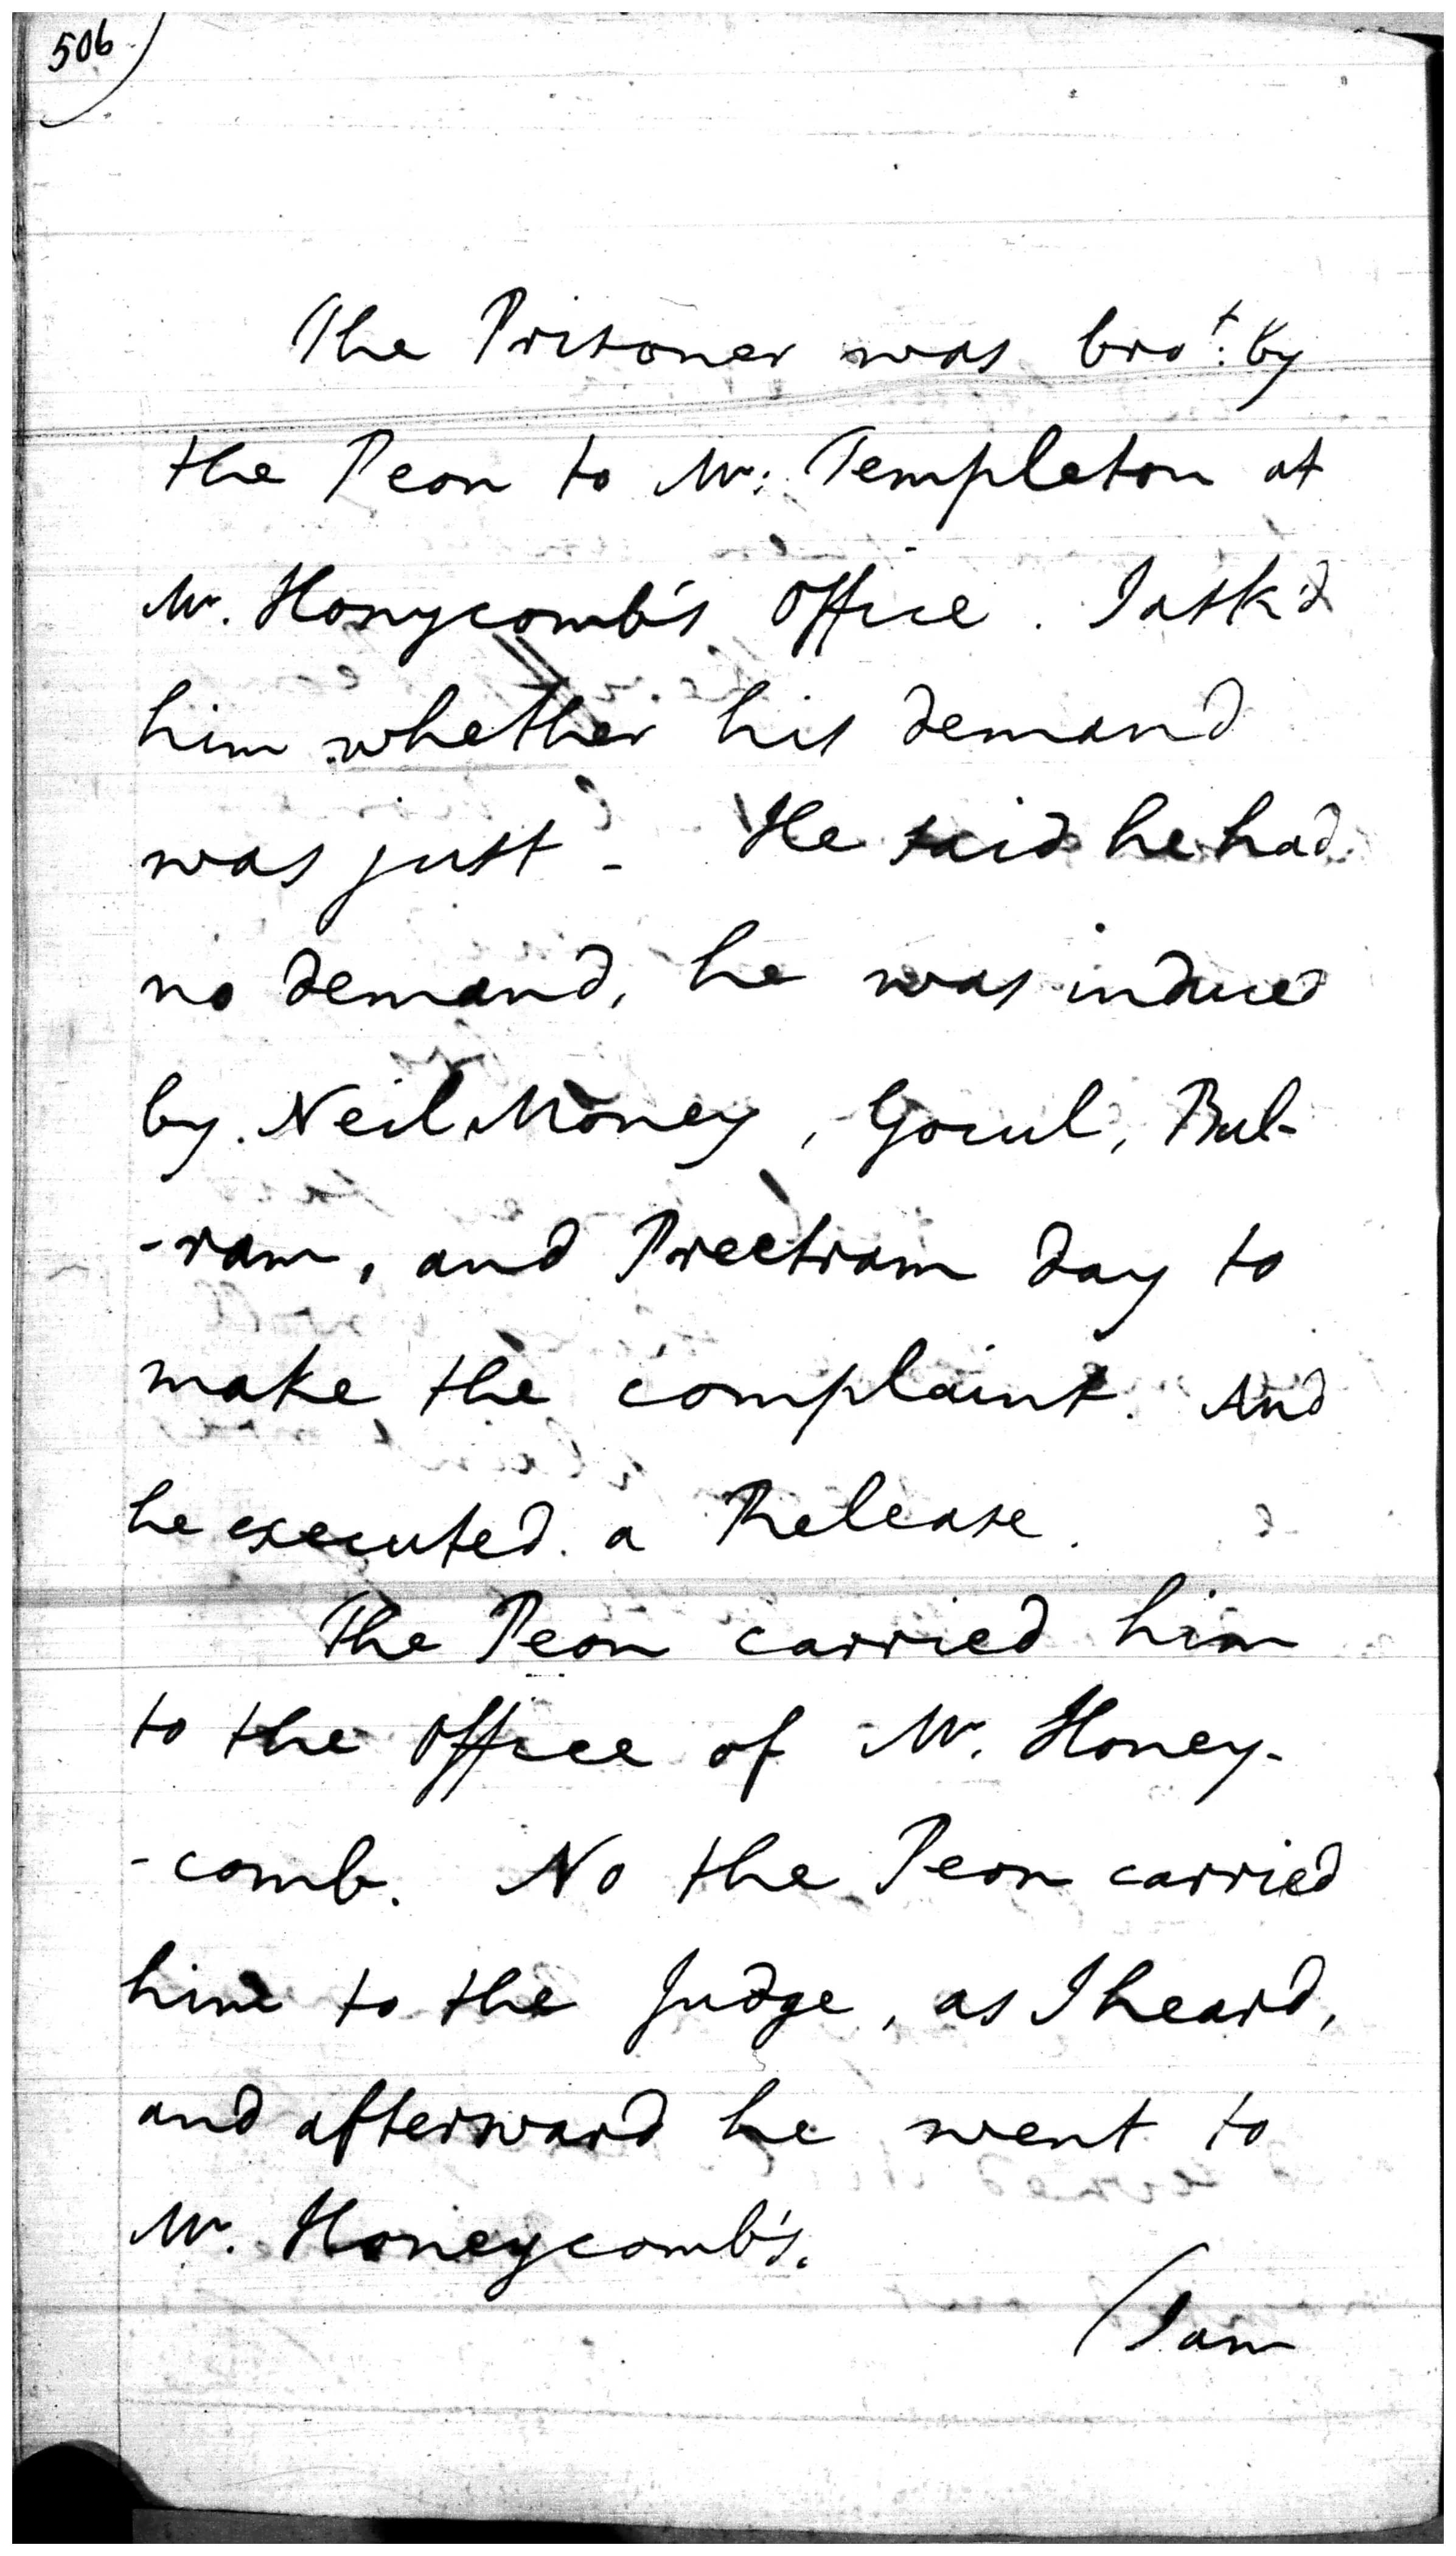 506
The Prisoner was bro^t. by
the Peon to Mr. Templeton at
Mr. Honycomb's Office. I ask'd
him whether his demand
was just - He said he had
no demand, he was induced
by Neil Money, Gocul, Bul-
-ram, and Preetram Day to
make the complaint. And
he executed a Release.
The Peon carried him
to the Office of Mr. Honey-
-comb. No the Peon carried
him to the Judge, as I heard,
and afterward he went to
Mr. Honeycomb's.
(I am